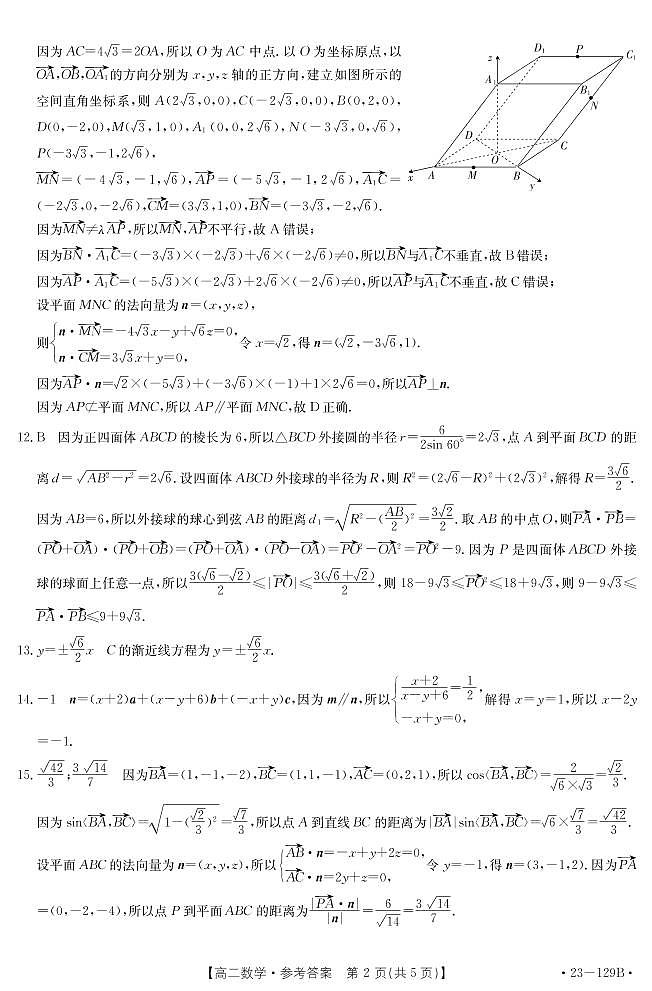 因为 AC=4√3=2OA,所以 O 为 AC 中点. 以 O 为坐标原点,以
OA,OB,OA₁的方向分别为 x,y,z 轴的正方向,建立如图所示的
空间直角坐标系,则 A(2√3,0,0),C(-2√3,0,0),B(0,2,0),
D(0,-2,0),M(√3,1,0),A₁(0,0,2√6),N(-3√3,0,√6),
P(-3√3,-1,2√6),
MN=(-4√3,-1,√6),AP=(-5√3,-1,2√6),A₁C=
(-2√3,0,-2√6),CM=(3√3,1,0),BN=(-3√3,-2,√6).
z
D₁
P
C₁
A₁
B₁
N
D
C
O
x
A
M
B
y
因为MN≠λAP,所以MN,AP不平行,故 A 错误;
因为BN·A₁C=(-3√3)×(-2√3)+√6×(-2√6)≠0,所以BN与A₁C不垂直,故 B 错误;
因为AP·A₁C=(-5√3)×(-2√3)+2√6×(-2√6)≠0,所以AP与A₁C不垂直,故 C 错误;
设平面 MNC 的法向量为 n=(x,y,z),
则{n·MN=-4√3x-y+√6z=0, n·CM=3√3x+y=0, 令 x=√2,得 n=(√2,-3√6,1).
因为AP·n=√2×(-5√3)+(-3√6)×(-1)+1×2√6=0,所以AP⊥n.
因为 AP⊄平面 MNC,所以 AP∥平面 MNC,故 D 正确.
12. B 因为正四面体 ABCD 的棱长为 6,所以△BCD 外接圆的半径 r=6/(2sin 60°)=2√3,点 A 到平面 BCD 的距
离 d=√(AB²-r²)=2√6. 设四面体 ABCD 外接球的半径为 R,则 R²=(2√6-R)²+(2√3)²,解得 R=3√6/2.
因为 AB=6,所以外接球的球心到弦 AB 的距离 d₁=√(R²-(AB/2)²)=3√2/2. 取 AB 的中点 O,则PA·PB=
(PO+OA)·(PO+OB)=(PO+OA)·(PO-OA)=PO²-OA²=PO²-9. 因为 P 是四面体 ABCD 外接
球的球面上任意一点,所以3(√6-√2)/2≤|PO|≤3(√6+√2)/2,则 18-9√3≤PO²≤18+9√3,则 9-9√3≤
PA·PB≤9+9√3.
13. y=±√6/2x C 的渐近线方程为 y=±√6/2x.
14. -1 n=(x+2)a+(x-y+6)b+(-x+y)c,因为 m∥n,所以{(x+2)/(x-y+6)=1/2, -x+y=0, 解得 x=y=1,所以 x-2y
=-1.
15. √42/3;3√14/7 因为BA=(1,-1,-2),BC=(1,1,-1),AC=(0,2,1),所以 cos⟨BA,BC⟩=2/(√6×√3)=√2/3.
因为 sin⟨BA,BC⟩=√(1-(√2/3)²)=√7/3,所以点 A 到直线 BC 的距离为|BA|sin⟨BA,BC⟩=√6×√7/3=√42/3.
设平面 ABC 的法向量为 n=(x,y,z),所以{AB·n=-x+y+2z=0, AC·n=2y+z=0, 令 y=-1,得 n=(3,-1,2). 因为PA
=(0,-2,-4),所以点 P 到平面 ABC 的距离为|PA·n|/|n|=6/√14=3√14/7.
【高二数学·参考答案 第 2 页(共 5 页)】
·23-129B·